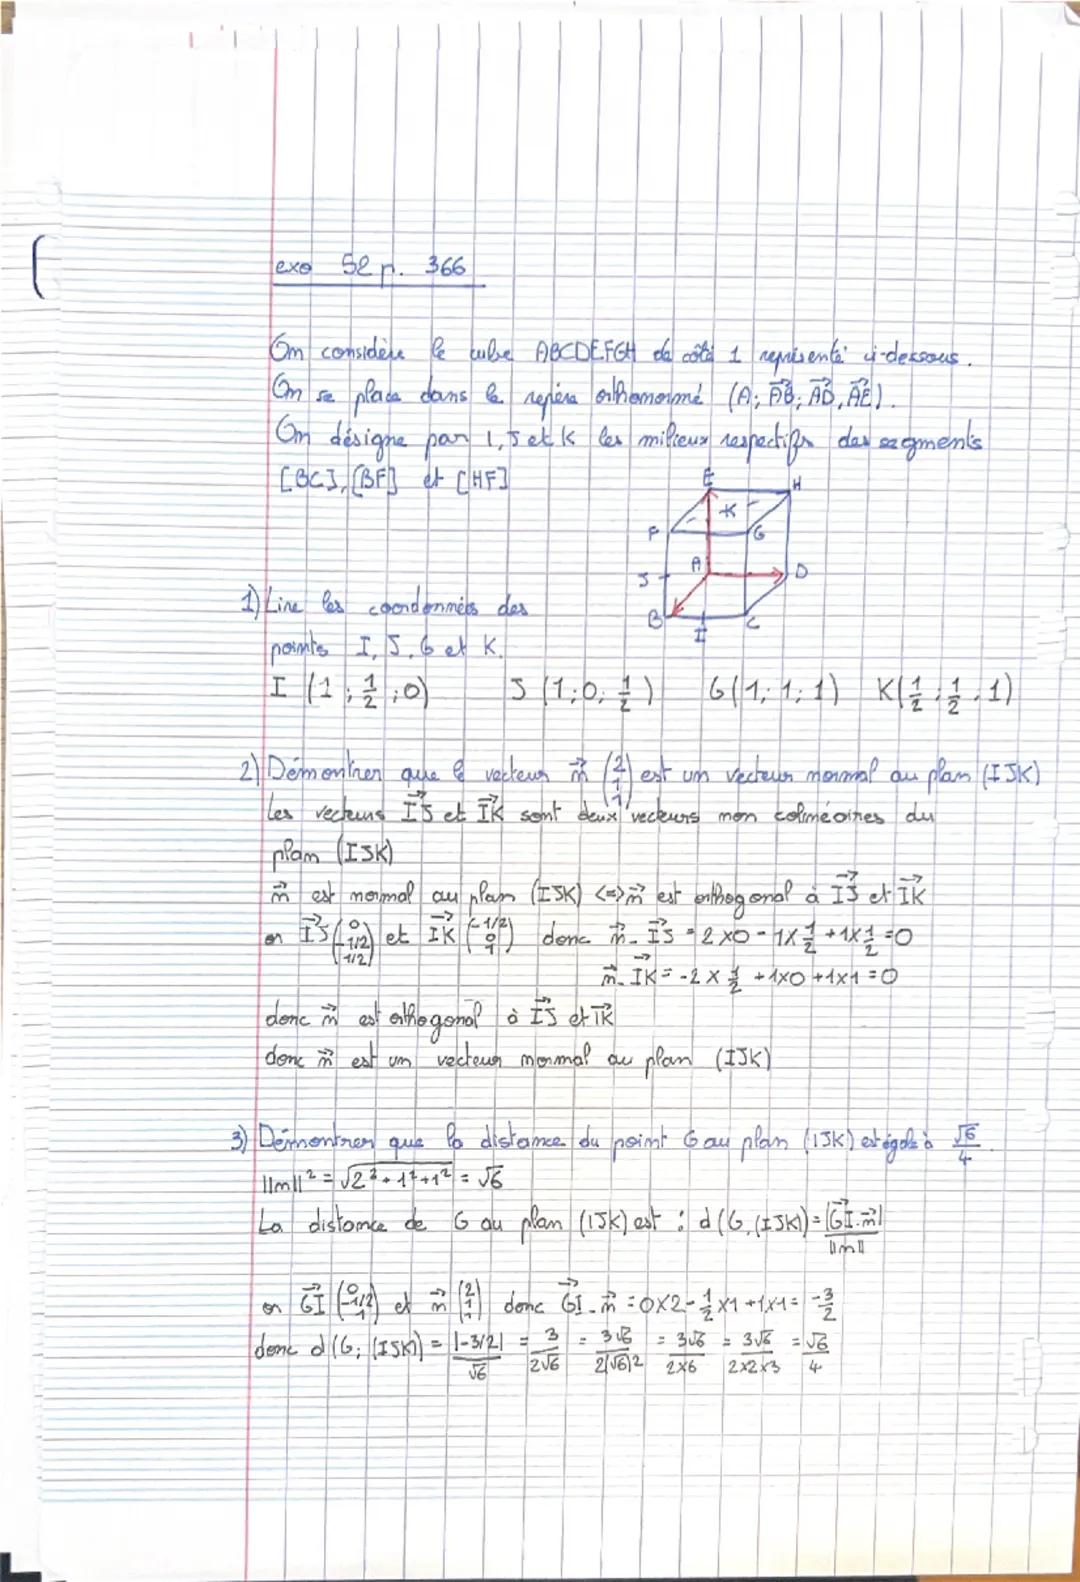 exo 52 p. 366
On considère le cube ABCDEFGH de côté 1 représenté ci-dessous.
On se place dans le repère orthonormé (A; \vec{AB}; \vec{AD}, \vec{AE}).
On désigne par I, J et K les milieux respectifs des segments
[BC], [BF] et [HF]
E H
K
F G
A D
J
B C
I
1) Lire les coordonnées des
points I, J, G et K.
I (1; 1/2; 0) J (1; 0; 1/2) G(1; 1; 1) K(1/2; 1/2; 1)
2) Démontrer que le vecteur \vec{n} (2 1 1) est un vecteur normal au plan (IJK)
Les vecteurs \vec{IJ} et \vec{IK} sont deux vecteurs non colinéaires du
plan (IJK)
\vec{n} est normal au plan (IJK) <=> \vec{n} est orthogonal à \vec{IJ} et \vec{IK}
or \vec{IJ} (0 -1/2 1/2) et \vec{IK} (-1/2 0 1) donc \vec{n}. \vec{IJ} = 2×0 - 1×1/2 + 1×1/2 = 0
\vec{n}. \vec{IK} = -2 × 1/2 + 1×0 + 1×1 = 0
donc \vec{n} est orthogonal à \vec{IJ} et \vec{IK}
donc \vec{n} est un vecteur normal au plan (IJK)
3) Démontrer que la distance du point G au plan (IJK) est égale à √6/4.
||n||² = √(2² + 1² + 1²) = √6
La distance de G au plan (IJK) est : d(G, (IJK)) = |\vec{GI}.\vec{n}|/||n||
or \vec{GI} (0 -1/2 -1) et \vec{n} (2 1 1) donc \vec{GI}.\vec{n} = 0×2 - 1/2 ×1 + 1×1 = -3/2
donc d(G; (IJK)) = |-3/2|/√6 = 3/2√6 = 3√6/2(√6)² = 3√6/2×6 = 3√6/2×2×3 = √6/4